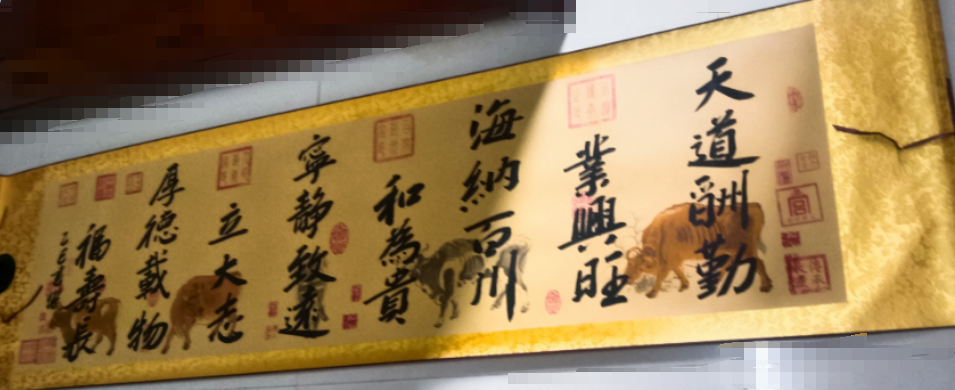 天道酬勤
業興旺
海納百川
和為貴
寧靜致遠
立大志
厚德載物
福壽長